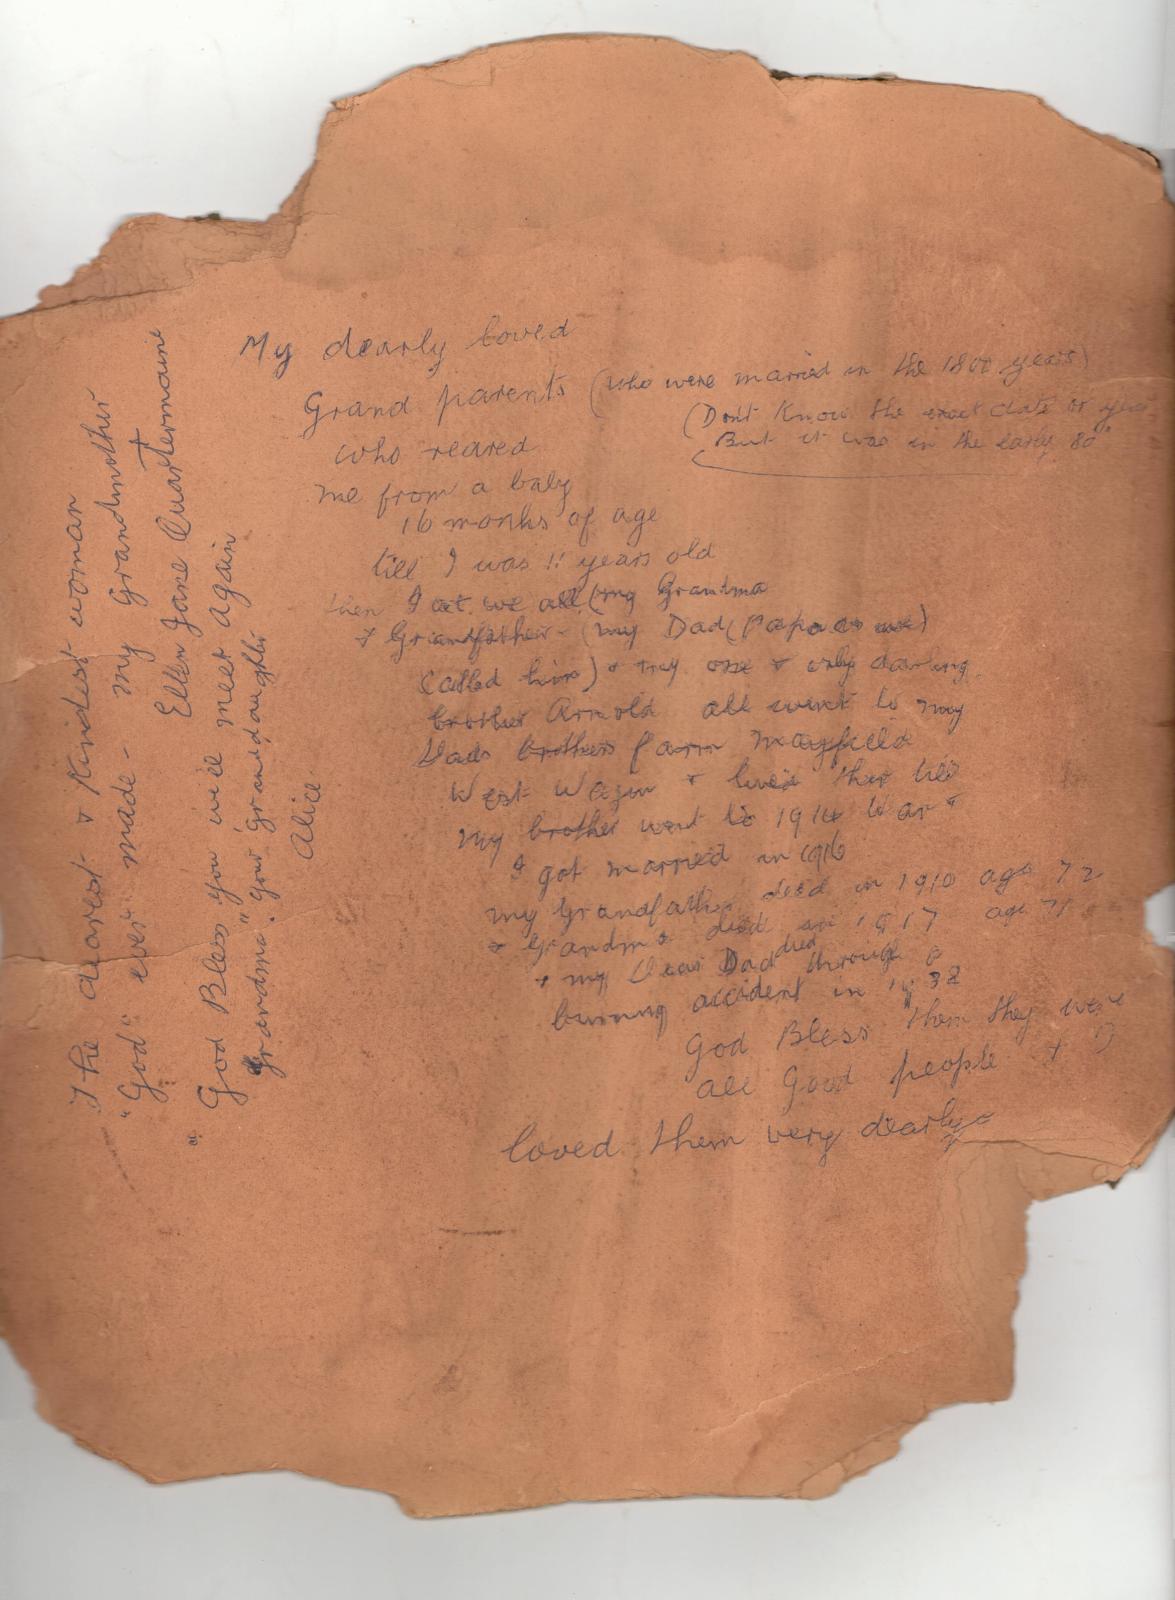 My dearly loved
Grand parents (who were married in the 1800 years)
(Don't Know the exact date or year
But it was in the early 80"
who reared
me from a baby
16 months of age
till I was 11 years old
then I we all (my Grandma
& Grandfather - (my Dad (Papa as we)
called him) & my one & only darling
brother Arnold all went to my
Dads brothers farm Mayfield
West Wagin & lived there till
my brother went to 1914 War"
I got married in 1916
my Grandfather died in 1910 age 72
& Grandma died in 1917 age 71
& my Dear Dad died through a
burning accident in 1938
God Bless them they were
all Good people & I
loved them very dearly
The dearest & Kindest woman
"God" ever made - my Grandmother
Ellen Jane Quartermaine
"God Bless you we'll meet again
Grandma" your granddaughter
Alice